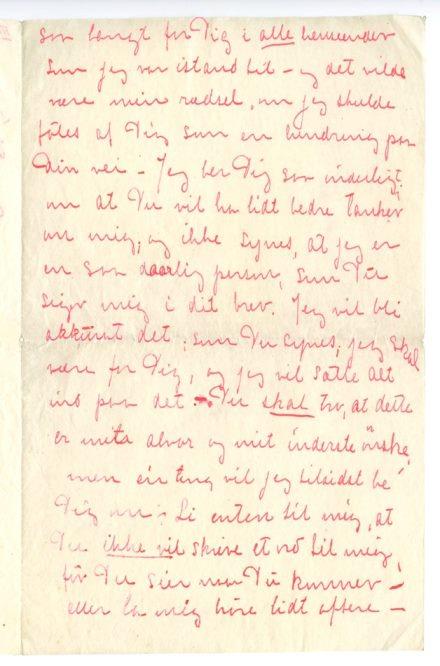 saa langt for Dig i alle henseender
som jeg var istand til – og det vilde
være min rædsel, om jeg skulde
føles af Dig som en hindring paa
Din vei – Jeg ber Dig saa inderligt
om at Du vil ha lidt bedre tanker
om mig; og ikke synes, at jeg er
en saa daarlig person, som Du
siger mig i dit brev. Jeg vil bli
akkurat det, som Du synes, jeg skal
være for Dig, og jeg vil sætte alt
ind paa det – Du skal tro, at dette
er mit alvor og mit inderste ønske,
men én ting vil jeg tilsidst be
Dig om: Si enten til mig, at
Du ikke vil skrive et ord til mig,
før Du sier naar Du kommer –
eller la mig høre lidt oftere –